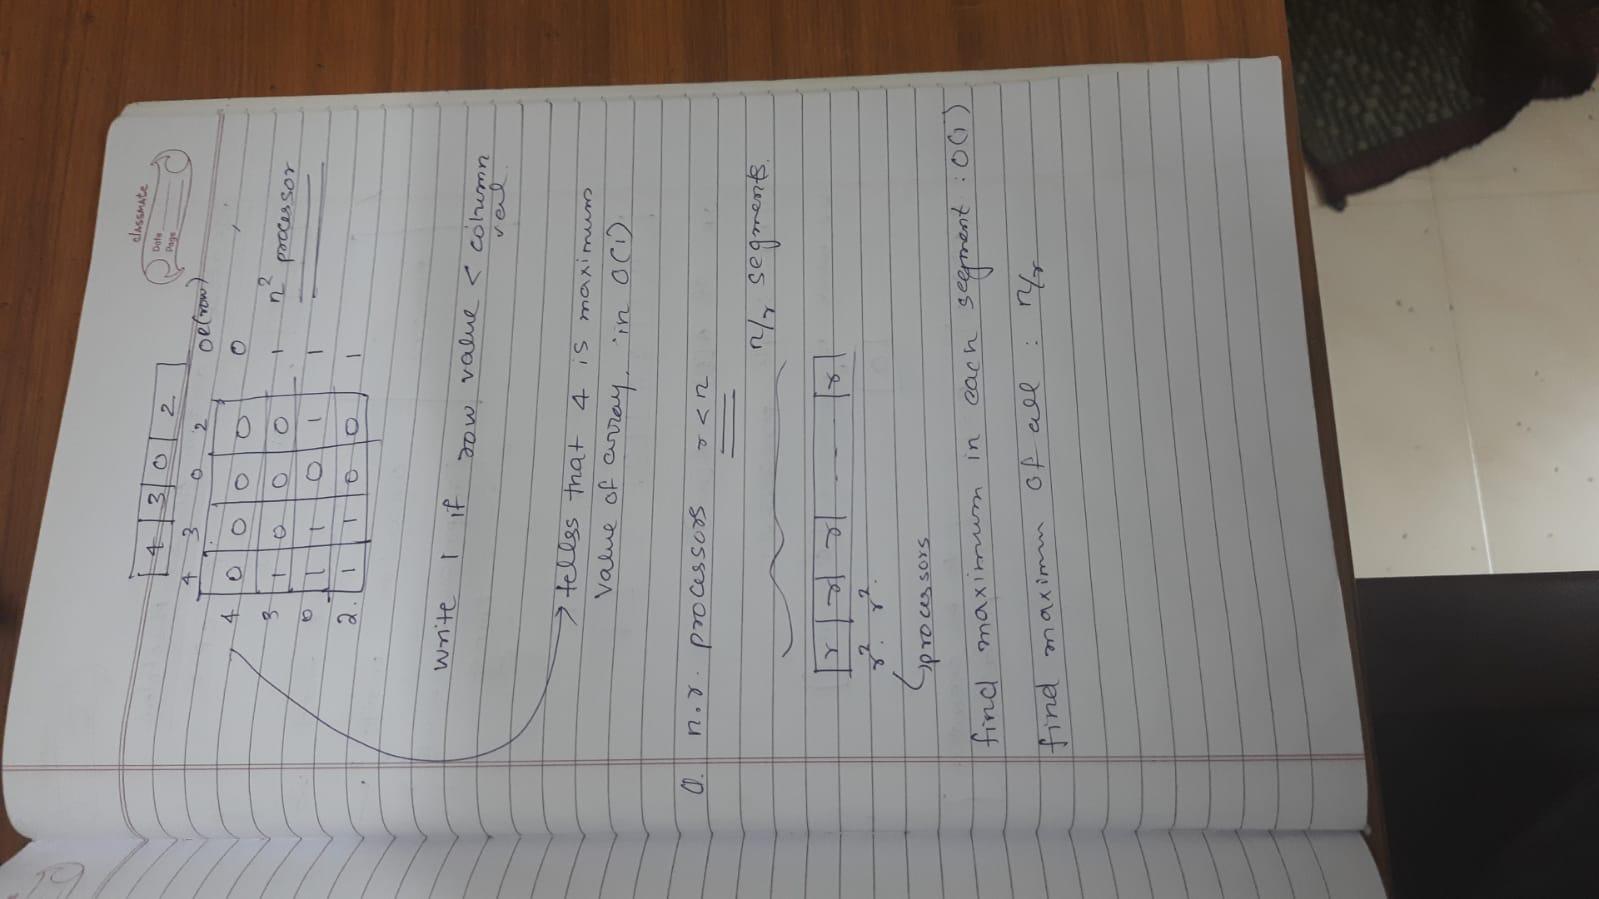 classmate
Date
Page
4 3 0 2
4 3 0 2 OR(row)
4 0 0 0 0 0
3 1 0 0 0 1 n² processor
0 1 1 0 1 1
2. 1 1 0 0 1
write 1 if row value < column
val.
→ tellss that 4 is maximum
value of array. in O(1)
Q. n.r. processors r<n
n/r segments.
r r r ---- r
r². r².
processors
find maximum in each segment : O(1)
find maximm of all : n/r